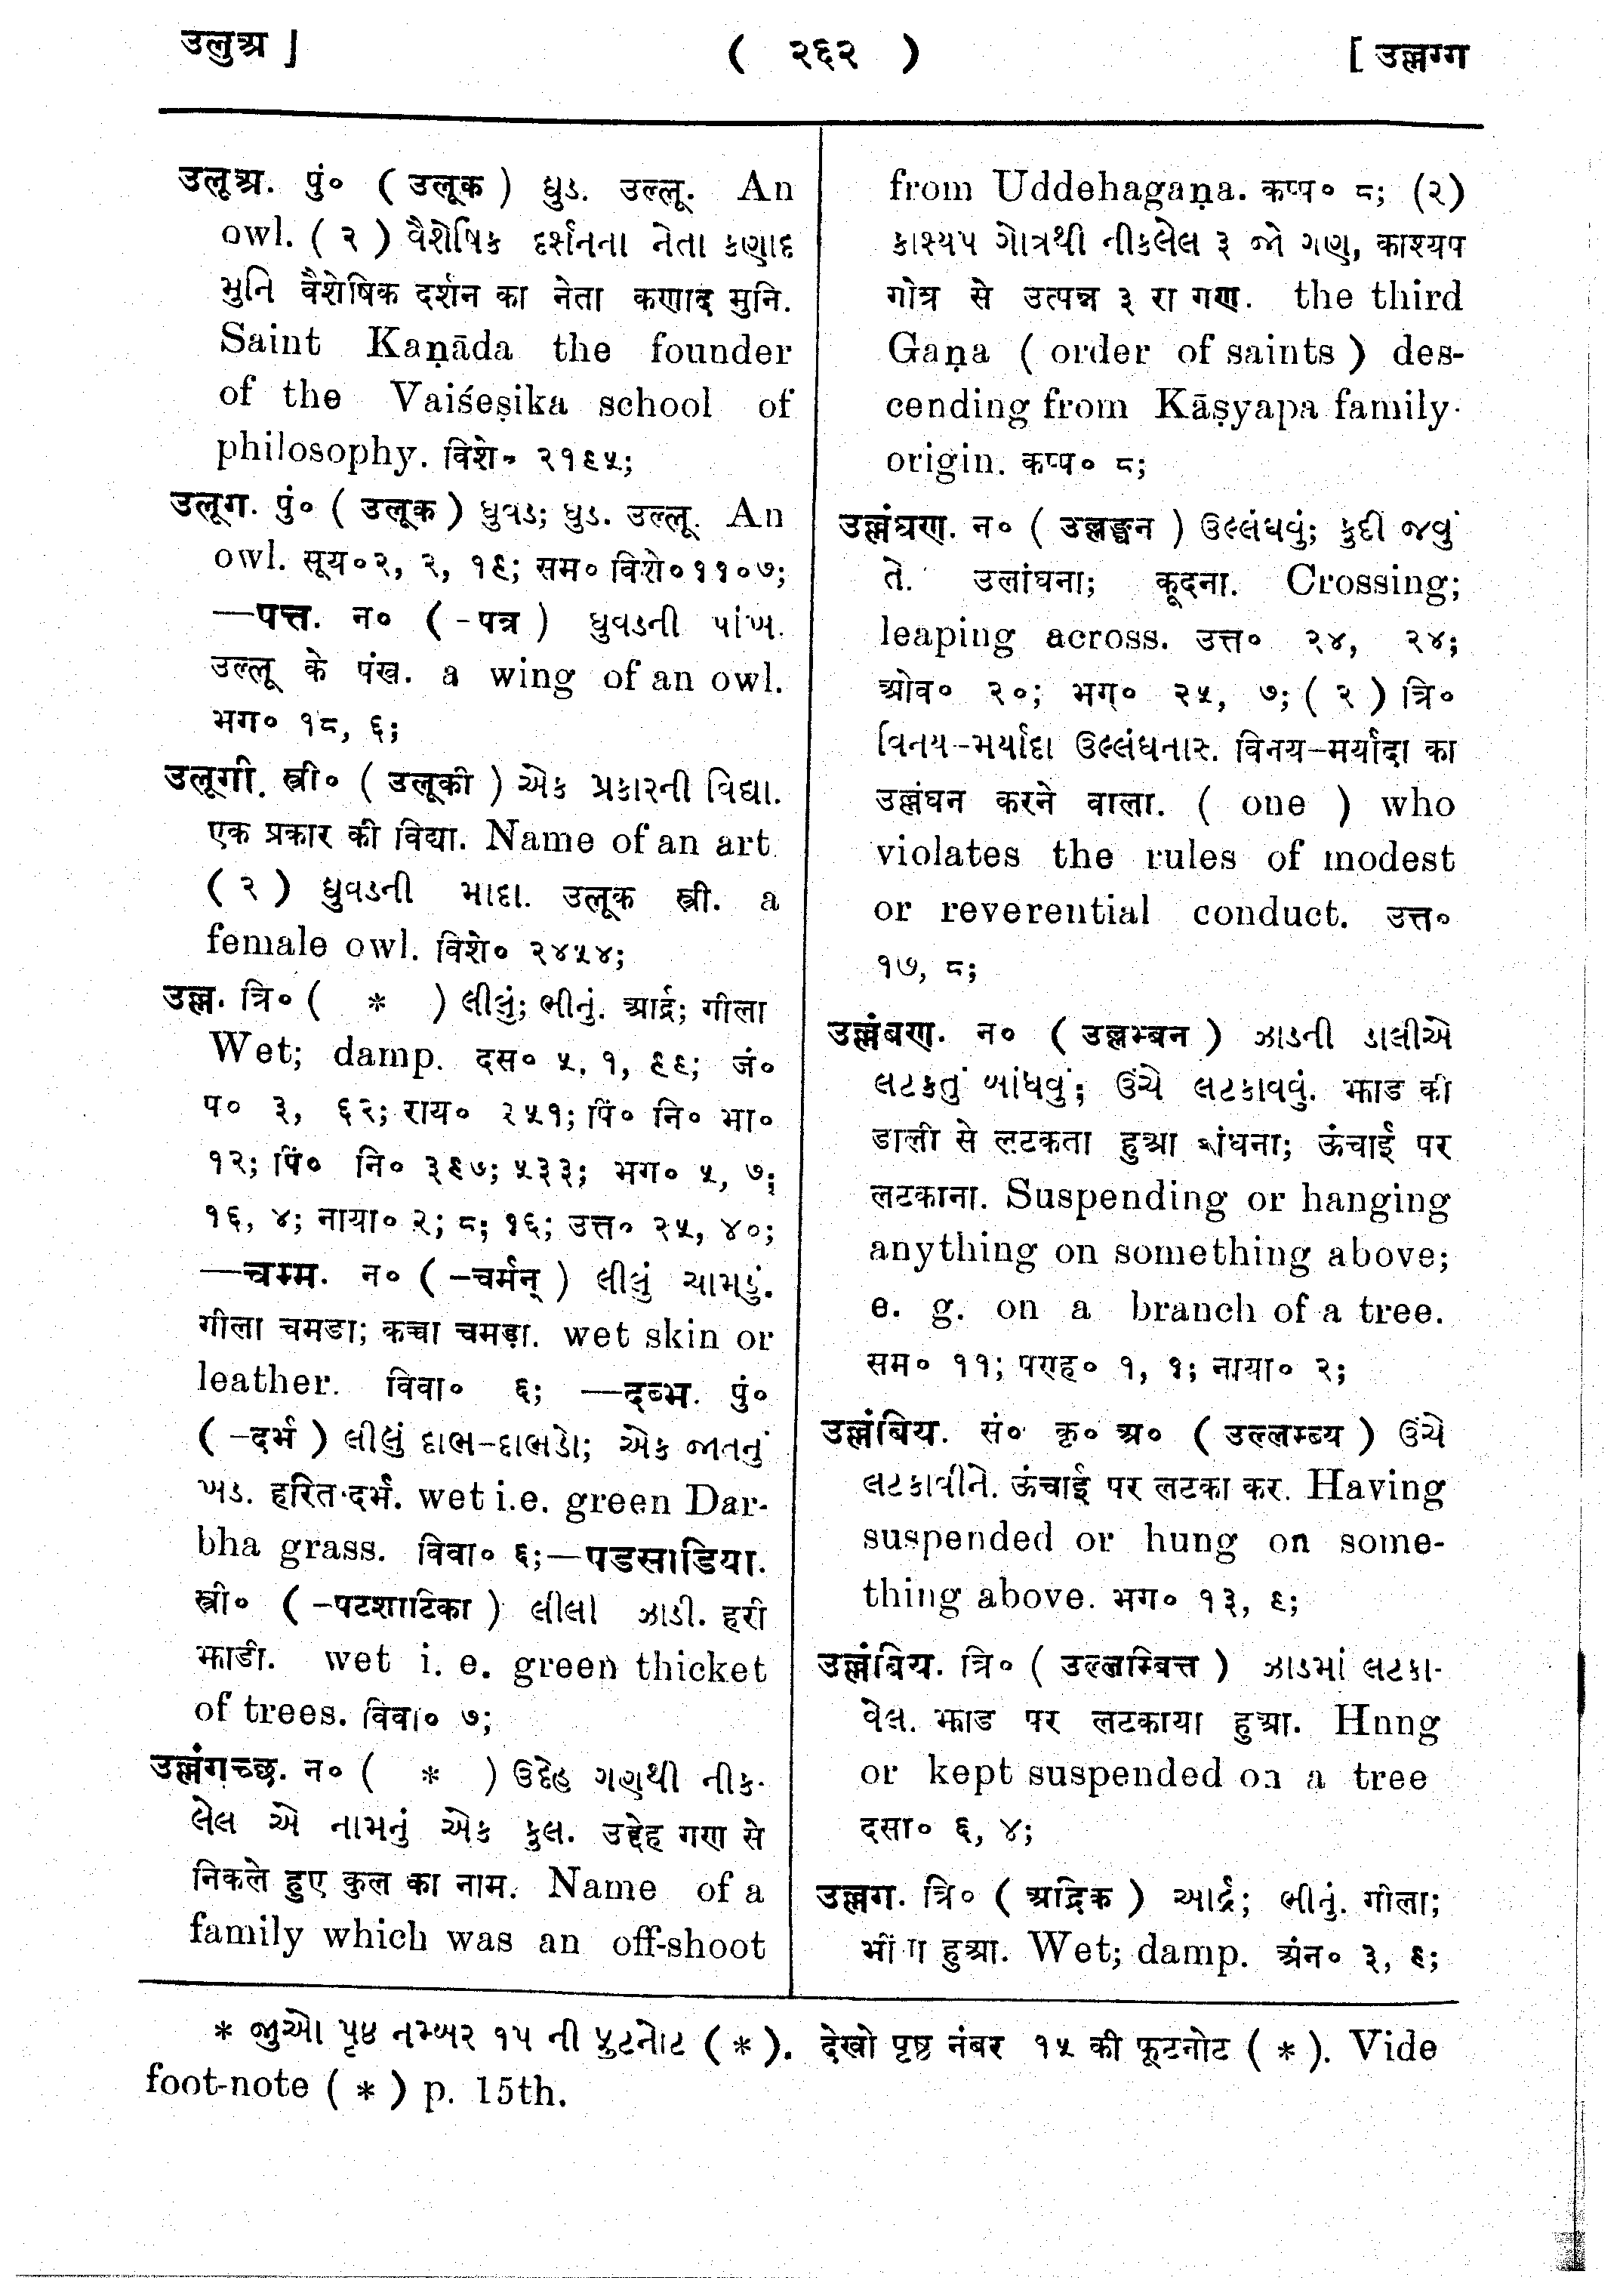 उलुअ ]
( २६२ )
[ उल्लग्ग
उलूअ. पुं० ( उलूक ) ધુડ. उल्लू. An
owl. ( २ ) વૈશેષિક દર્શનના નેતા કણાદ
મુનિ वैशेषिक दर्शन का नेता कणाद मुनि.
Saint Kaṇāda the founder
of the Vaiśeṣika school of
philosophy. विशे० २१६५;
उलूग. पुं० ( उलूक ) ધુવડ; ધુડ. उल्लू. An
owl. सूय० २, २, १६; सम० विशे० ११०७;
—पत्त. न० ( -पत्र ) ધુવડની પાંખ.
उल्लू के पंख. a wing of an owl.
भग० १८, ६;
उलूगी. स्त्री० ( उलूकी ) એક પ્રકારની વિદ્યા.
एक प्रकार की विद्या. Name of an art.
( २ ) ધુવડની માદા. उलूक स्त्री. a
female owl. विशे० २४५४;
उल्ल. त्रि० ( * ) લીલું; ભીનું. आर्द्र; गीला
Wet; damp. दस० ५, १, ६६; जं०
प० ३, ६२; राय० २५१; पिं० नि० भा०
१२; पिं० नि० ३६७; ५३३; भग० ५, ७;
१६, ४; नाया० २; ८; १६; उत्त० २५, ४०;
—चम्म. न० ( -चर्मन् ) લીલું ચામડું.
गीला चमडा; कच्चा चमड़ा. wet skin or
leather. विवा० ६; —दब्भ. पुं०
( -दर्भ ) લીલું દાભ-દાભડો; એક જાતનું
ખડ. हरित-दर्भ. wet i.e. green Dar-
bha grass. विवा० ६;—पडसाडिया.
स्त्री० ( -पटशाटिका ) લીલી ઝાડી. हरी
झाडी. wet i. e. green thicket
of trees. विवा० ७;
उल्लंगच्छ. न० ( * ) ઉદ્દેહ ગણથી નીક-
લેલ એ નામનું એક કુલ. उद्देह गण से
निकले हुए कुल का नाम. Name of a
family which was an off-shoot
from Uddehagaṇa. कप्प० ८; (२)
કાશ્યપ ગોત્રથી નીકલેલ ૩ જો ગણ, काश्यप
गोत्र से उत्पन्न ३ रा गण. the third
Gaṇa ( order of saints ) des-
cending from Kāṣyapa family-
origin. कप्प० ८;
उल्लंघण. न० ( उल्लङ्घन ) ઉલ્લંઘવું; કુદી જવું
તે. उलांघना; कूदना. Crossing;
leaping across. उत्त० २४, २४;
ओव० २०; भग० २५, ७; ( २ ) त्रि०
વિનય-મર્યાદા ઉલ્લંઘનાર. विनय-मर्यादा का
उल्लंघन करने वाला. ( one ) who
violates the rules of modest
or reverential conduct. उत्त०
१७, ८;
उल्लंबण. न० ( उल्लम्बन ) ઝાડની ડાલીએ
લટકતું બાંધવું; ઉંચે લટકાવવું. झाड की
डाली से लटकता हुआ बांधना; ऊंचाई पर
लटकाना. Suspending or hanging
anything on something above;
e. g. on a branch of a tree.
सम० ११; पण्ह० १, १; नाया० २;
उल्लंबिय. सं० कृ० अ० ( उल्लम्ब्य ) ઉંચે
લટકાવીને. ऊंचाई पर लटका कर. Having
suspended or hung on some-
thing above. भग० १३, ६;
उल्लंबिय. त्रि० ( उल्लम्बित्त ) ઝાડમાં લટકા-
વેલ. झाड पर लटकाया हुआ. Hnng
or kept suspended on a tree
दसा० ६, ४;
उल्लग. त्रि० ( अर्द्रिक ) આર્દ્ર; ભીનું. गीला;
हुआ. Wet; damp. अंन० ३, ६;
* જુઓ પૃષ્ઠ નમ્બર ૧૫ ની ફુટનોટ ( * ). देखो पृष्ठ नंबर १५ की फूटनोट ( * ). Vide
foot-note ( * ) p. 15th.